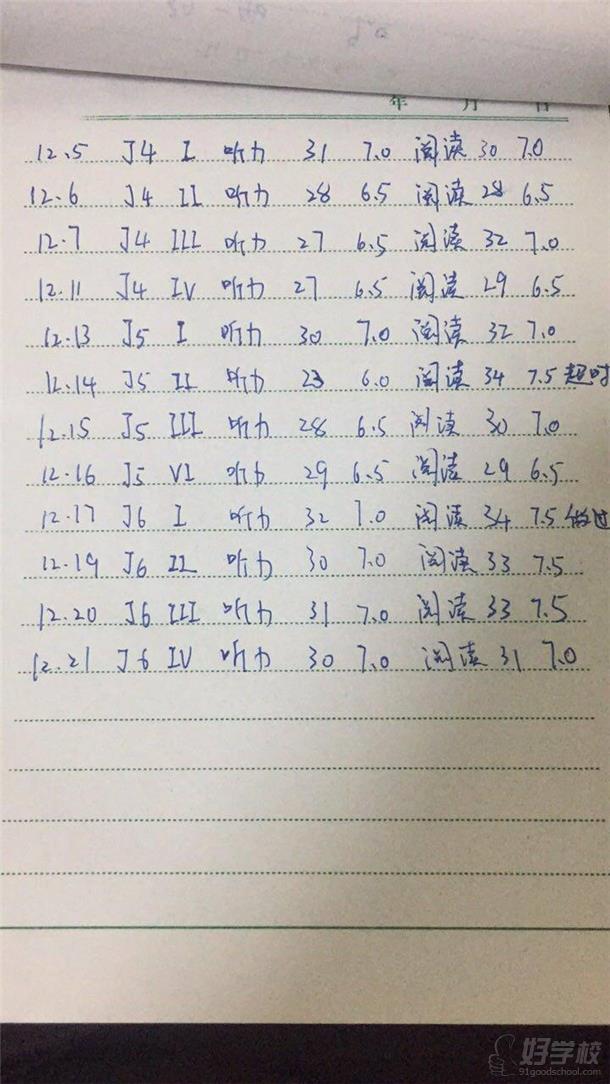 年 月 日
12.5 J4 I 听力 31 7.0 阅读 30 7.0
12.6 J4 II 听力 28 6.5 阅读 28 6.5
12.7 J4 III 听力 27 6.5 阅读 32 7.0
12.11 J4 IV 听力 27 6.5 阅读 29 6.5
12.13 J5 I 听力 30 7.0 阅读 32 7.0
12.14 J5 II 听力 23 6.0 阅读 34 7.5 超时
12.15 J5 III 听力 28 6.5 阅读 30 7.0
12.16 J5 VI 听力 29 6.5 阅读 29 6.5
12.17 J6 I 听力 32 7.0 阅读 34 7.5 做过
12.19 J6 II 听力 30 7.0 阅读 33 7.5
12.20 J6 III 听力 31 7.0 阅读 33 7.5
12.21 J6 IV 听力 30 7.0 阅读 31 7.0
好学校
91goodschool.com